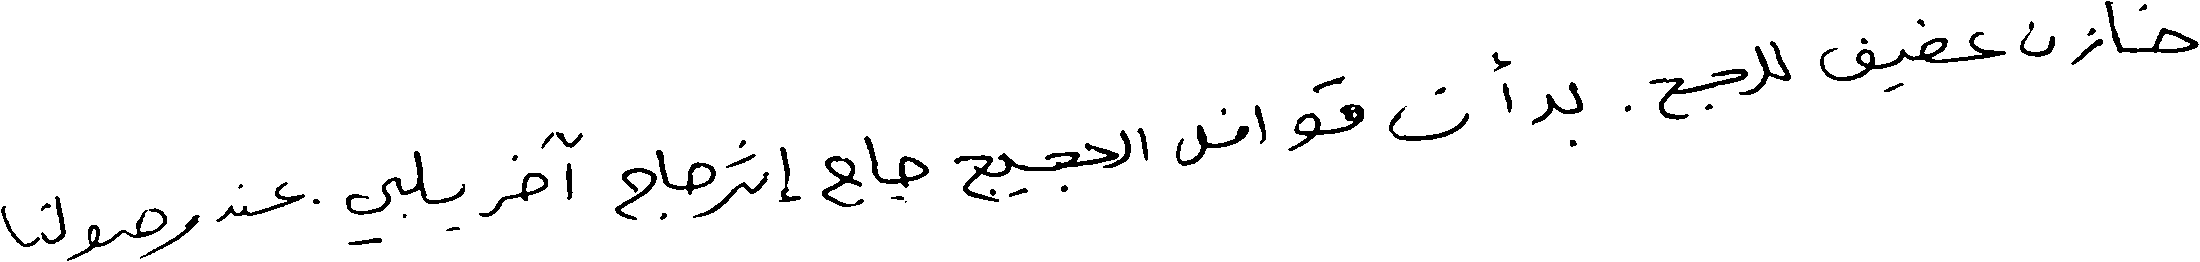 خازن عفيف للحج . بدأت قوافل الحجيج حاج إثر حاج آخر يلبي . عند وصولنا